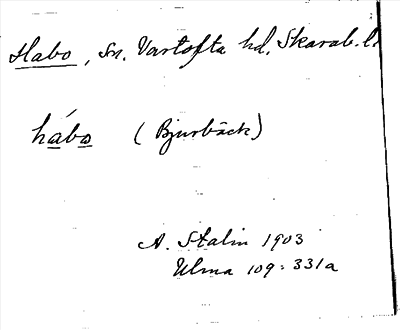 Habo, Sn. Vartofta hd, Skarab. l.
hábo (Bjurbäck)
A. Stalin 1903
Ulma 109:331a